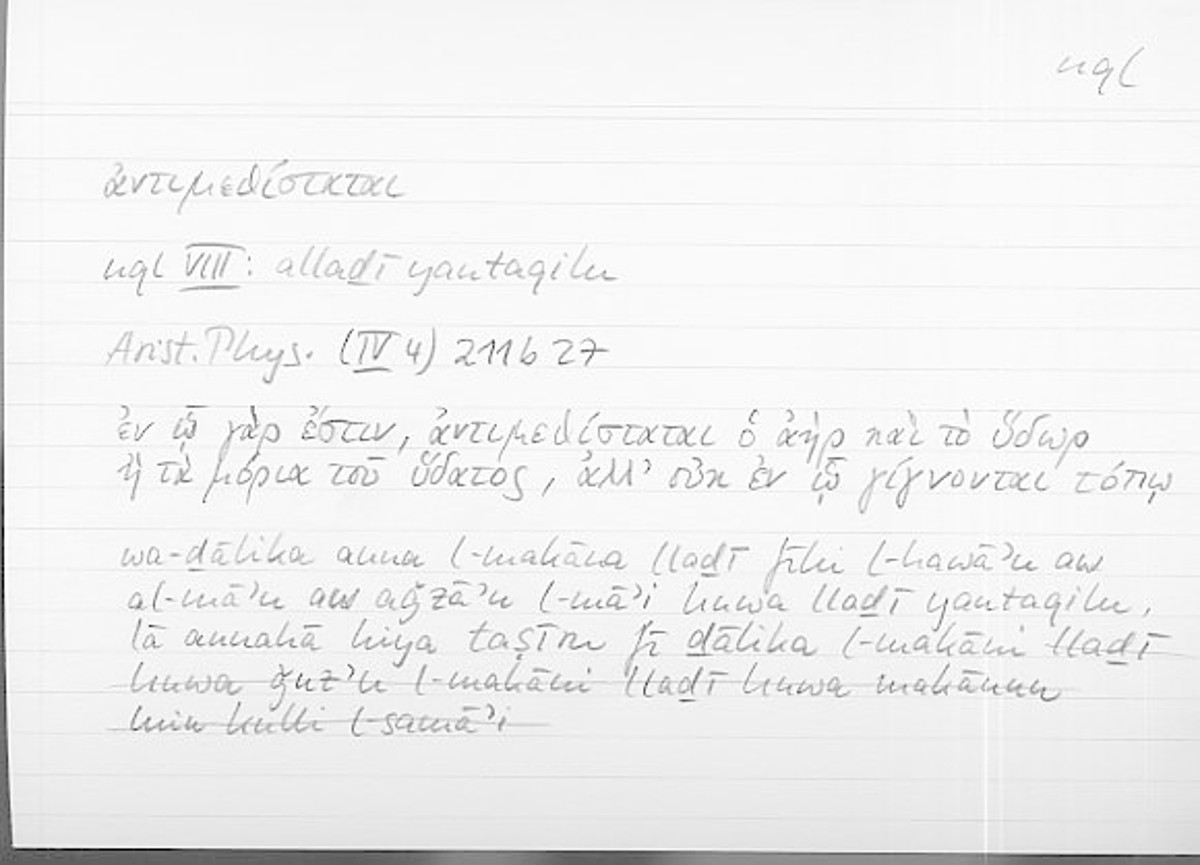 nql
ἀντιμεθίσταται
nql VIII: allaḏī yantaqilu
Arist. Phys. (IV 4) 211 b 27
ἐν ᾧ γάρ ἐστιν, ἀντιμεθίσταται ὁ ἀὴρ καὶ τὸ ὕδωρ
ἢ τὰ μόρια τοῦ ὕδατος, ἀλλ’ οὐκ ἐν ᾧ γίγνονται τόπῳ
wa-ḏālika anna l-makāna llaḏī fīhi l-hawāʾu aw
al-māʾu aw aǧzāʾu l-māʾi huwa llaḏī yantaqilu,
lā annahā hiya taṣīru fī ḏālika l-makāni llaḏī
huwa ǧuzʾu l-makāni llaḏī huwa makānun
min kulli l-samāʾi